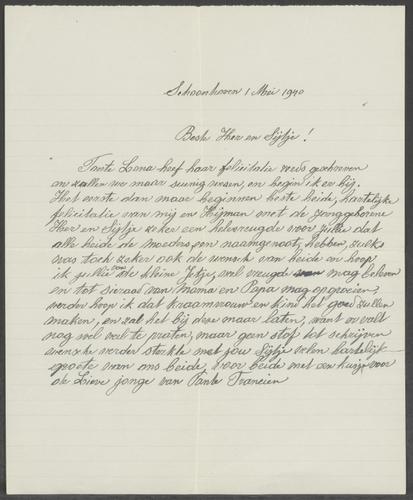 Schoonhoven 1 Mei 1940
Beste Hier en Sijtje!
Tante Lena heef haar felicitatie reeds geschreven
en zullen we maar zuinig wezen, en begin ik er bij.
Het eerste dan maar beginnen beste beide, hartelijke
felicitatie van mij en Thijman met de jonggeborene
Hier en Sijtje zeker een heele vreugde voor jullie dat
alle beide de moeders een naamgenoot, hebben, zulks
was toch zeker ook de wensch van beide en hoop
ik jullie van de kleine Jetje, veel vreugde mag beleven
en tot sieraad van Mama en Papa mag opgroeien,
verder hoop ik dat kraamvrouw en kind het goed zullen
maken, en zal het bij deze maar laten, want er valt
nog wel veel te praten, maar geen stof tot schrijven
wensche verder sterkte met jou Sijtje velen hartelijk
groete van ons beide, voor beide met een kusje voor
de Lieve jonge van Tante Francien